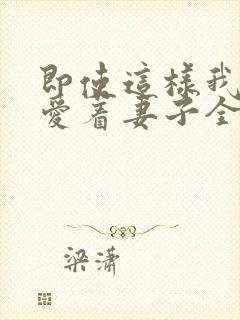 即使這樣我
愛着妻子全
梁潇